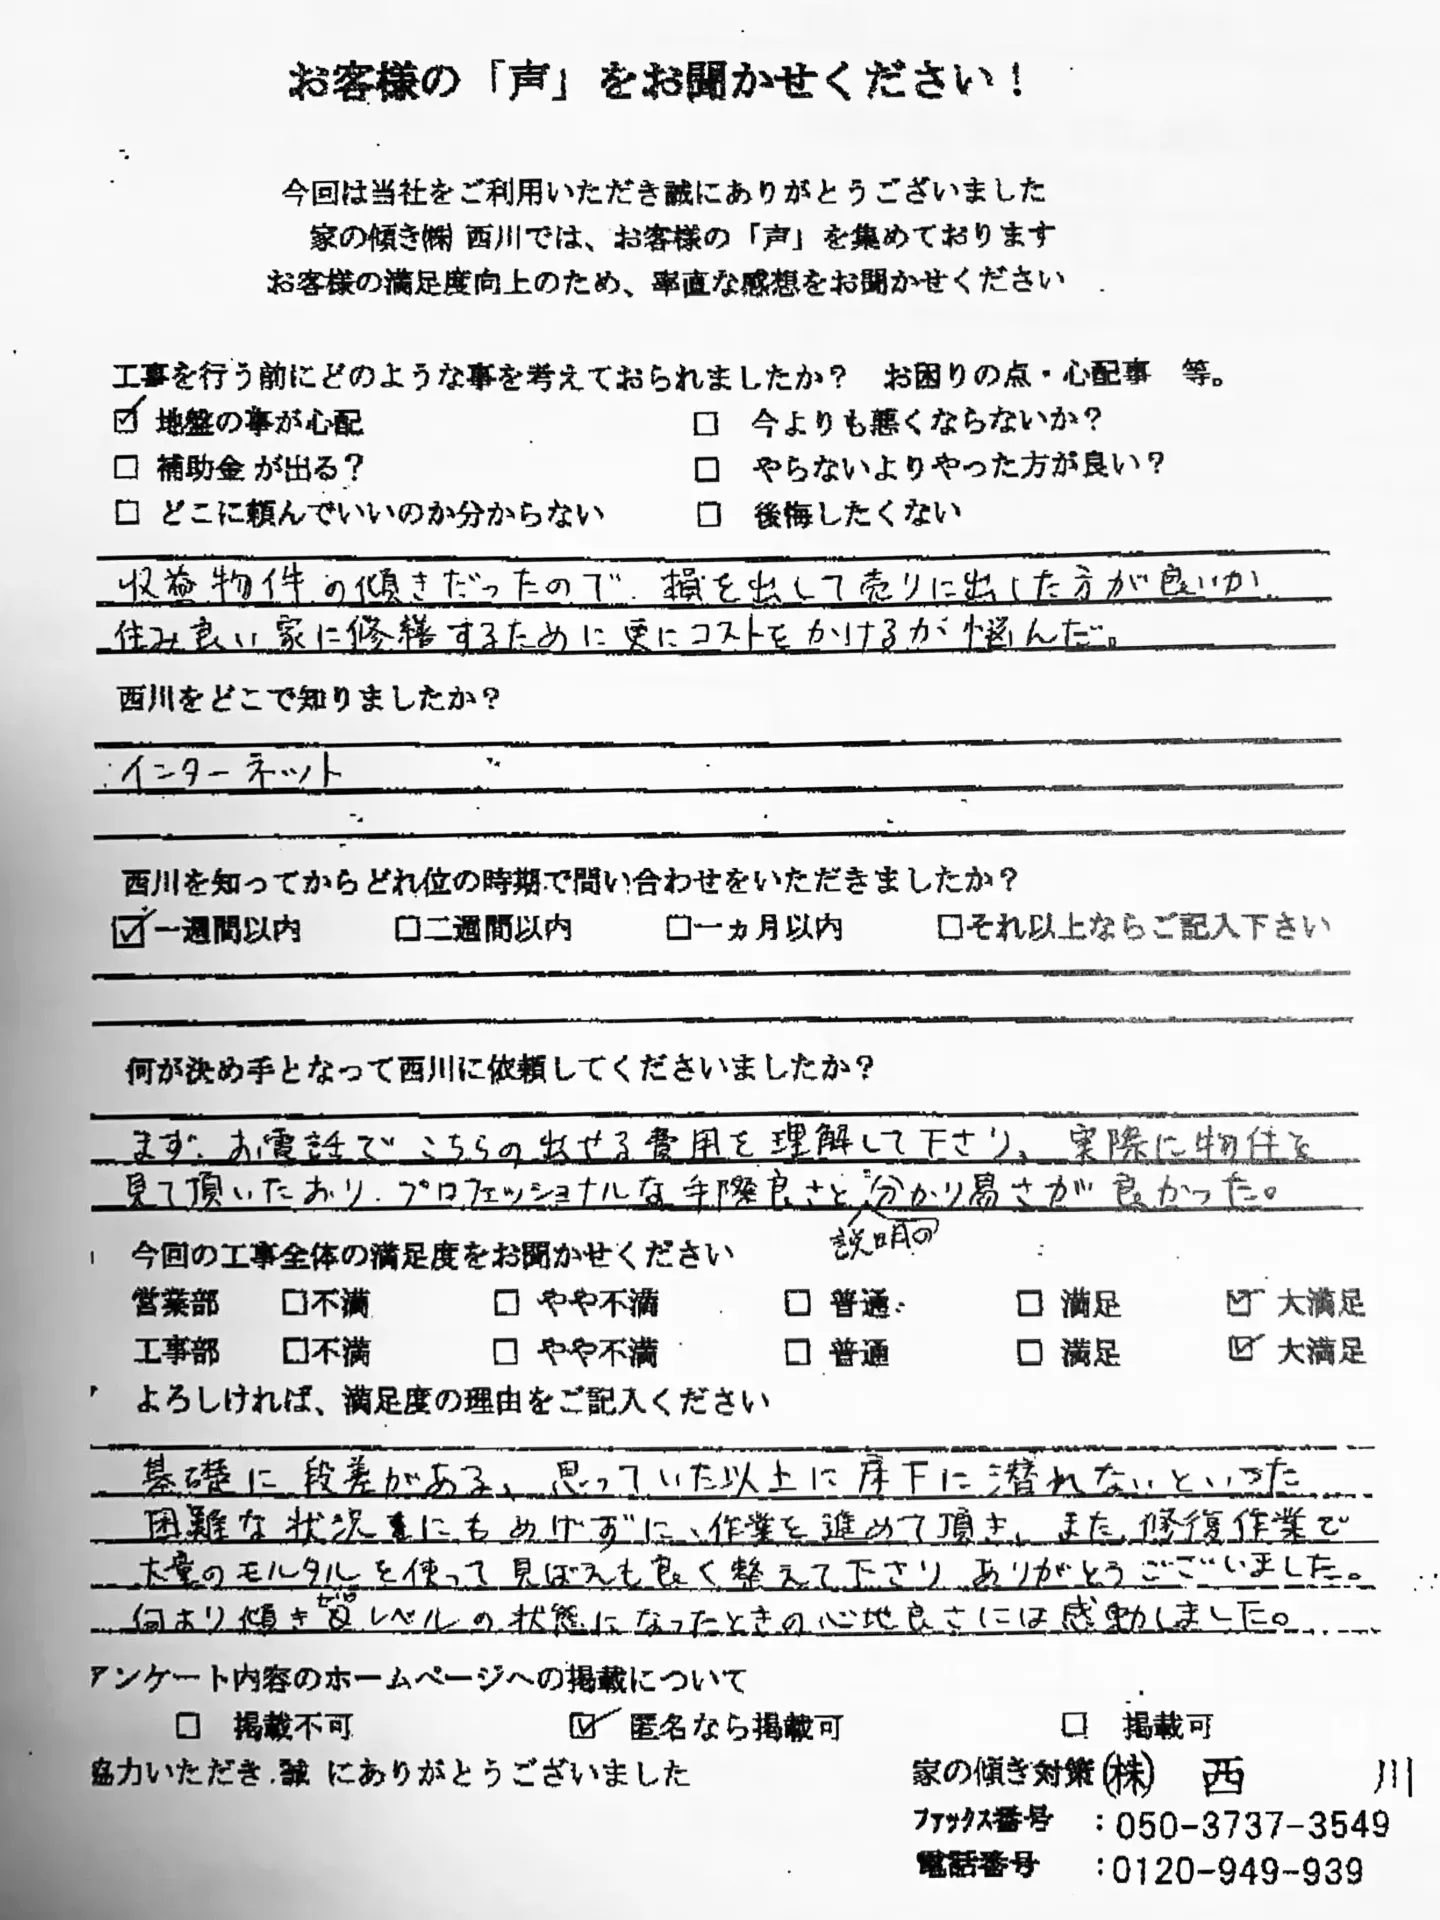 お客様の「声」をお聞かせください！
今回は当社をご利用いただき誠にありがとうございました
家の傾き㈱西川では、お客様の「声」を集めております
お客様の満足度向上のため、率直な感想をお聞かせください
工事を行う前にどのような事を考えておられましたか？　お困りの点・心配事　等。
☑ 地盤の事が心配　□ 今よりも悪くならないか？
□ 補助金が出る？　□ やらないよりやった方が良い？
□ どこに頼んでいいのか分からない　□ 後悔したくない
収益物件の傾きだったので、損を出して売りに出した方が良いか、
住み良い家に修繕するために更にコストをかけるが悩んだ。
西川をどこで知りましたか？
インターネット
西川を知ってからどれ位の時期で問い合わせをいただきましたか？
☑一週間以内　□二週間以内　□一ヵ月以内　□それ以上ならご記入下さい
何が決め手となって西川に依頼してくださいましたか？
まず、お電話でこちらの出せる費用を理解して下さり、実際に物件を
見て頂いたおり、プロフェッショナルな手際良さと説明の分かり易さが良かった。
今回の工事全体の満足度をお聞かせください
営業部　□不満　□ やや不満　□ 普通　□ 満足　☑ 大満足
工事部　□不満　□ やや不満　□ 普通　□ 満足　☑ 大満足
よろしければ、満足度の理由をご記入ください
基礎に段差がある、思っていた以上に床下に潜れないといった
困難な状況にもめげずに、作業を進めて頂き、また、修復作業で
大量のモルタルを使って見ばえも良く整えて下さりありがとうございました。
何より傾きゼロレベルの状態になったときの心地良さには感動しました。
アンケート内容のホームページへの掲載について
□ 掲載不可　☑ 匿名なら掲載可　□ 掲載可
協力いただき誠にありがとうございました
家の傾き対策(株)　西　川
ﾌｧｯｸｽ番号　：050-3737-3549
電話番号　：0120-949-939